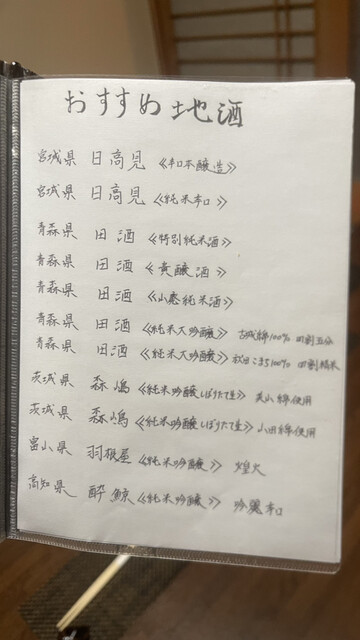 おすすめ地酒
宮城県 日高見 《辛口本醸造》
宮城県 日高見 《純米辛口》
青森県 田酒 《特別純米酒》
青森県 田酒 《貴醸酒》
青森県 田酒 《山廃純米酒》
青森県 田酒 《純米大吟醸》 古城錦100% 四割五分
青森県 田酒 《純米大吟醸》 秋田こまち100% 四割精米
茨城県 森嶋 《純米吟醸しぼりたて生》 美山錦使用
茨城県 森嶋 《純米吟醸しぼりたて生》 山田錦使用
富山県 羽根屋 《純米吟醸》 煌火
高知県 酔鯨 《純米吟醸》 吟麗 辛口